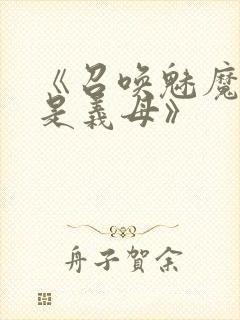 《召唤魅魔
是義母》
舟子賀余